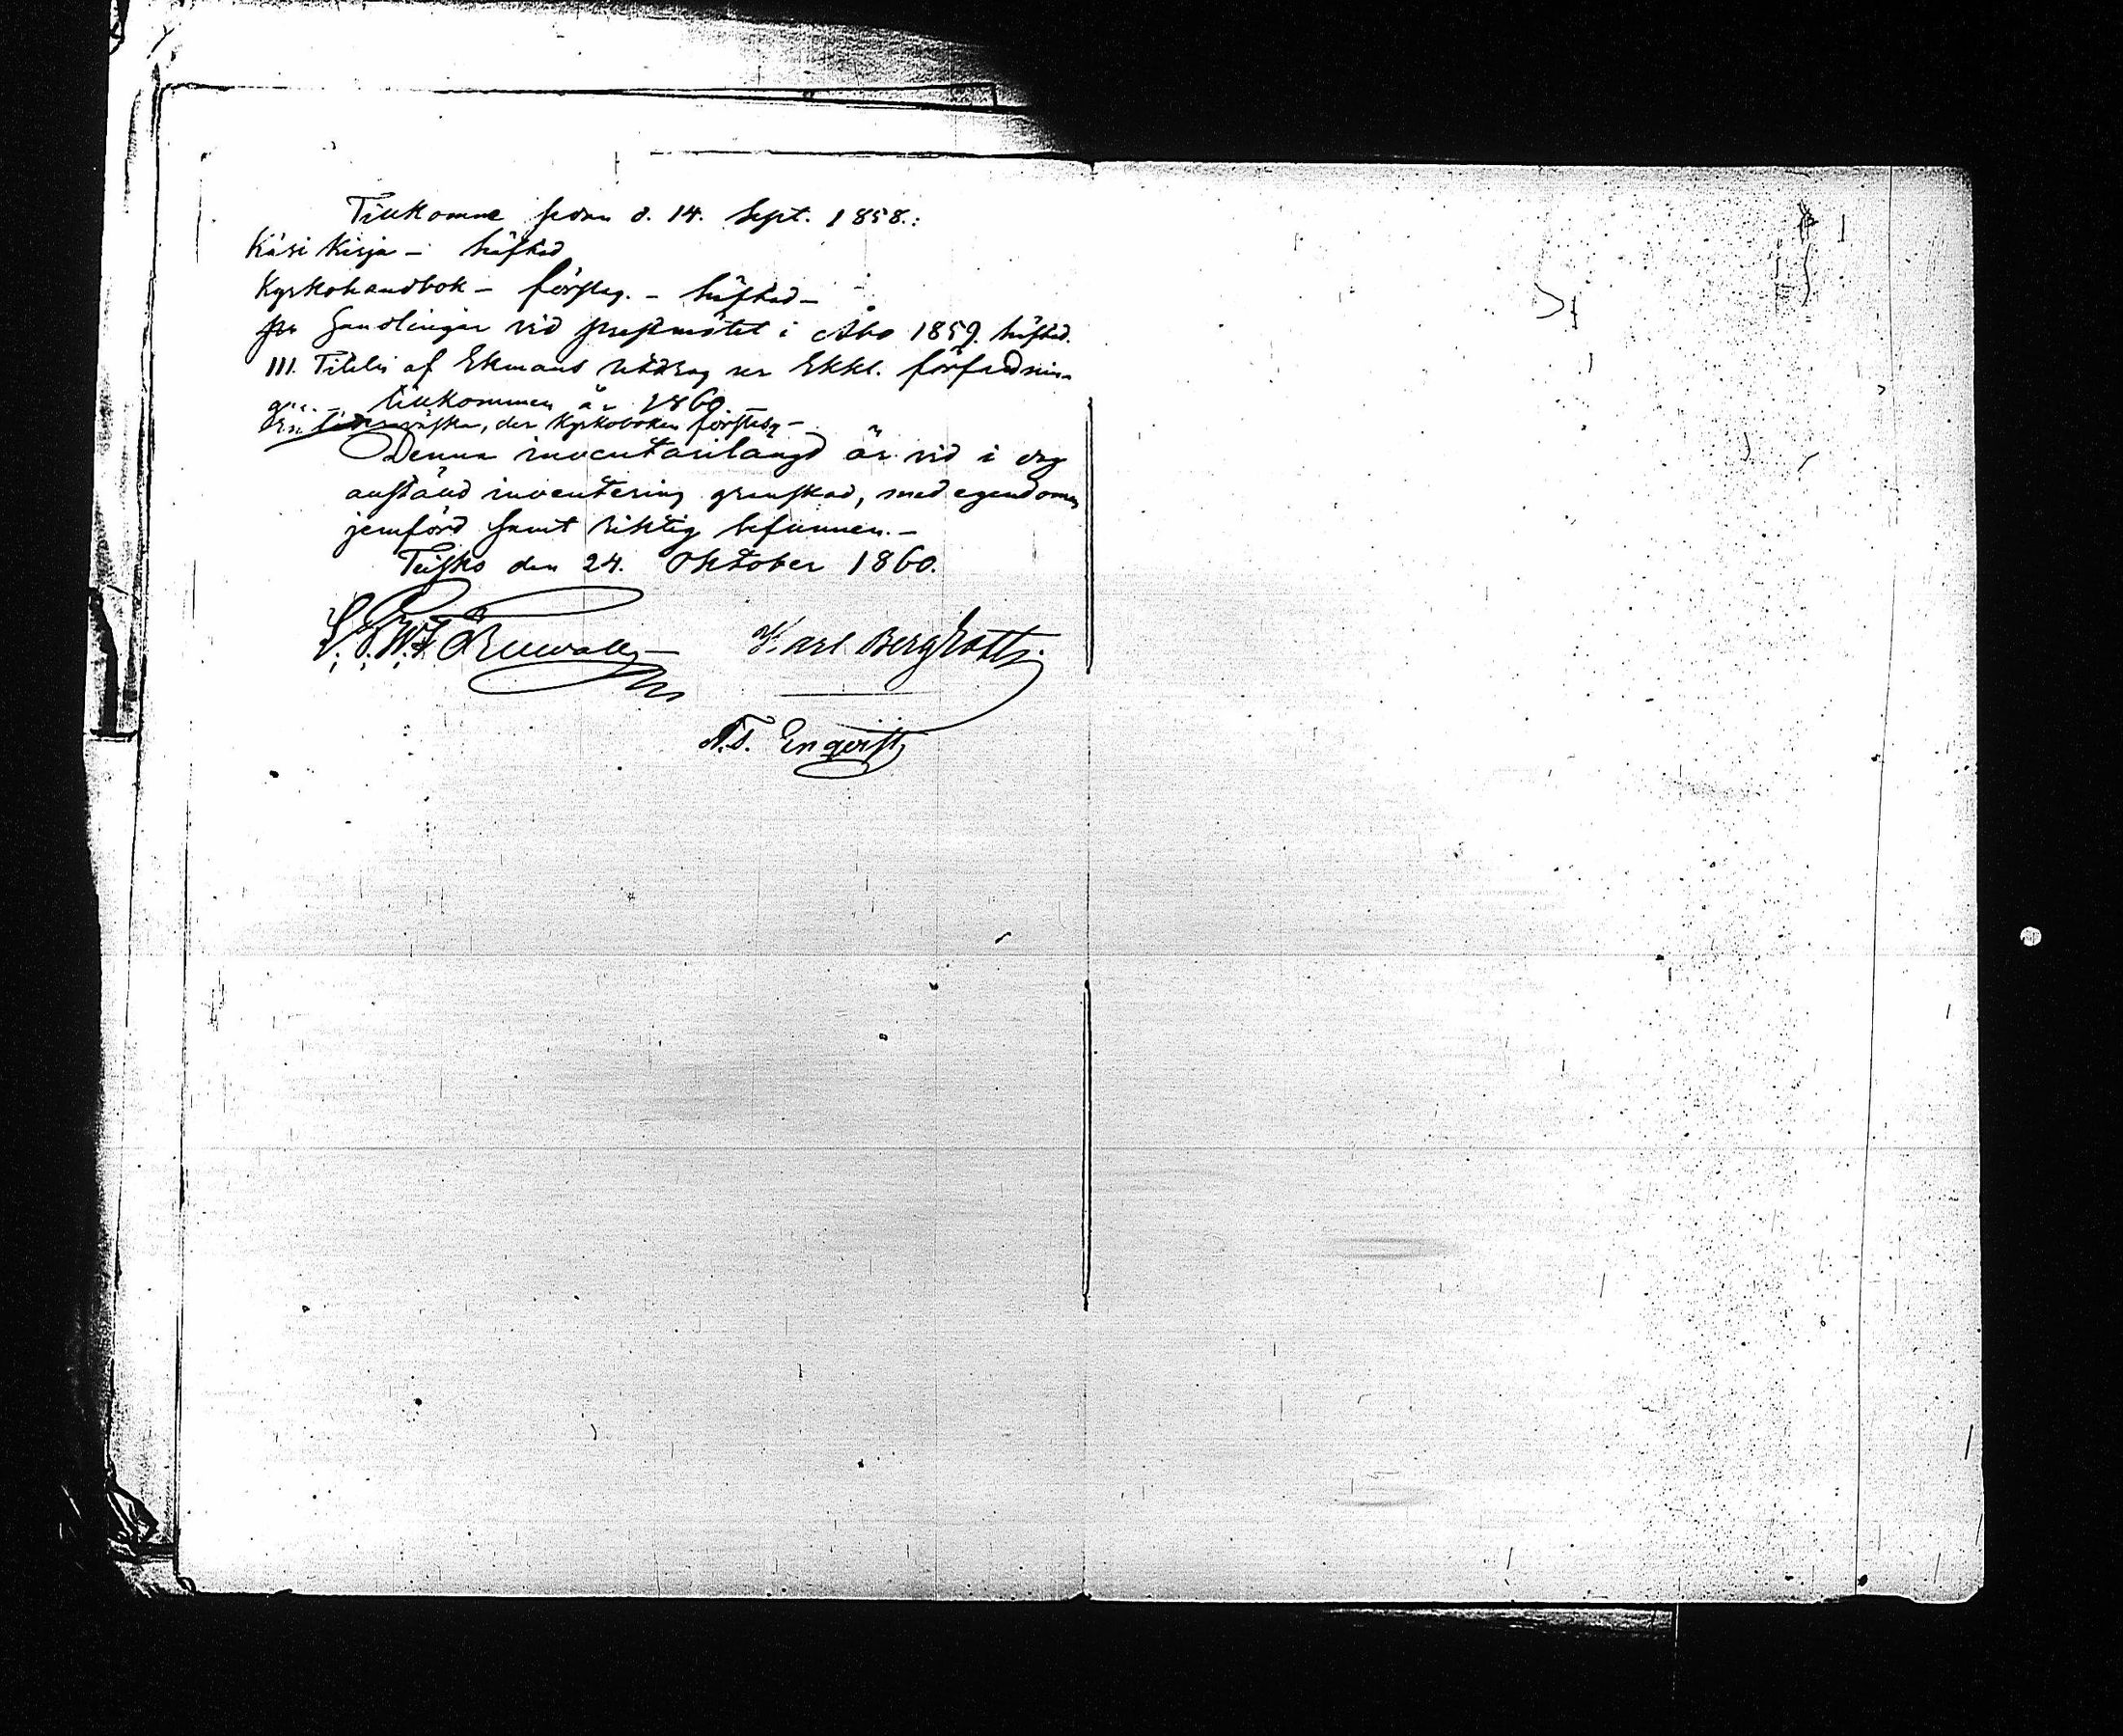 Tillkomne sedan d. 14. Sept. 1858.:
Käsi Kirja - häftad
Kyrkohandbok - förslag. - häftad -
Handlingar vid prestmötet i Åbo 1859. häftad.
III. Titeln af Ekmans utdrag ur Ekkl. författnin-
gar. - tillkommen år 1860
der Kyrkoboken förslag -
Denna inventarilängd är vid i dag
anstäld inventering granskad, med egendomen
jemförd samt riktig befunnen. -
Teisko den 24. Oktober 1860.
Karl Bergroth.
Enqvist